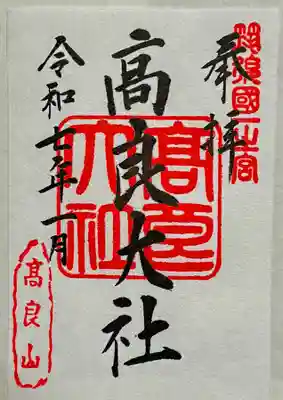 筑後國一之宮
奉拝
高良大社
髙良大社
令和七年一月
高良山